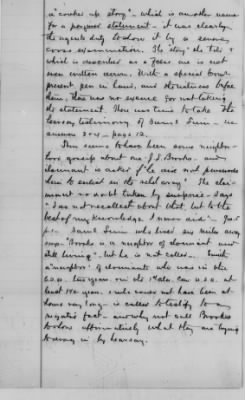 "a cooked up story" - which is another name
for a perjured statement - it was clearly
the agents duty to show it by a severe
cross examination. The "story" she tells &
which is described as a false one is not
even written down. With a special [agent]
present, pen in hand, and witnesses before
them, there was no excuse for not taking
the statement. There was time to take the
hearsay testimony of James Linn - see
answers 3 & 4 - page 12.
This seems to have been some neighbor-
hood gossip about one J. S. Brooks - and
claimant is asked if he did not
him to enlist in the rebel army? The claimant
is not taken by surprise - says
"I do not recollect about that, but to the
best of my knowledge I never did" - Jas
Linn who lived six miles away
says "Brooks is a neighbor of claimant and
still living", but he is not called -
a "neighbor" of claimants who was in the
two years, in the 1st Ala. Cav. U.S.A. at
least two years, & who could not have been at
home very long - is called to testify to a
negative fact - and why not call Brooks
to show affirmatively what they are trying
to bring in by hearsay.